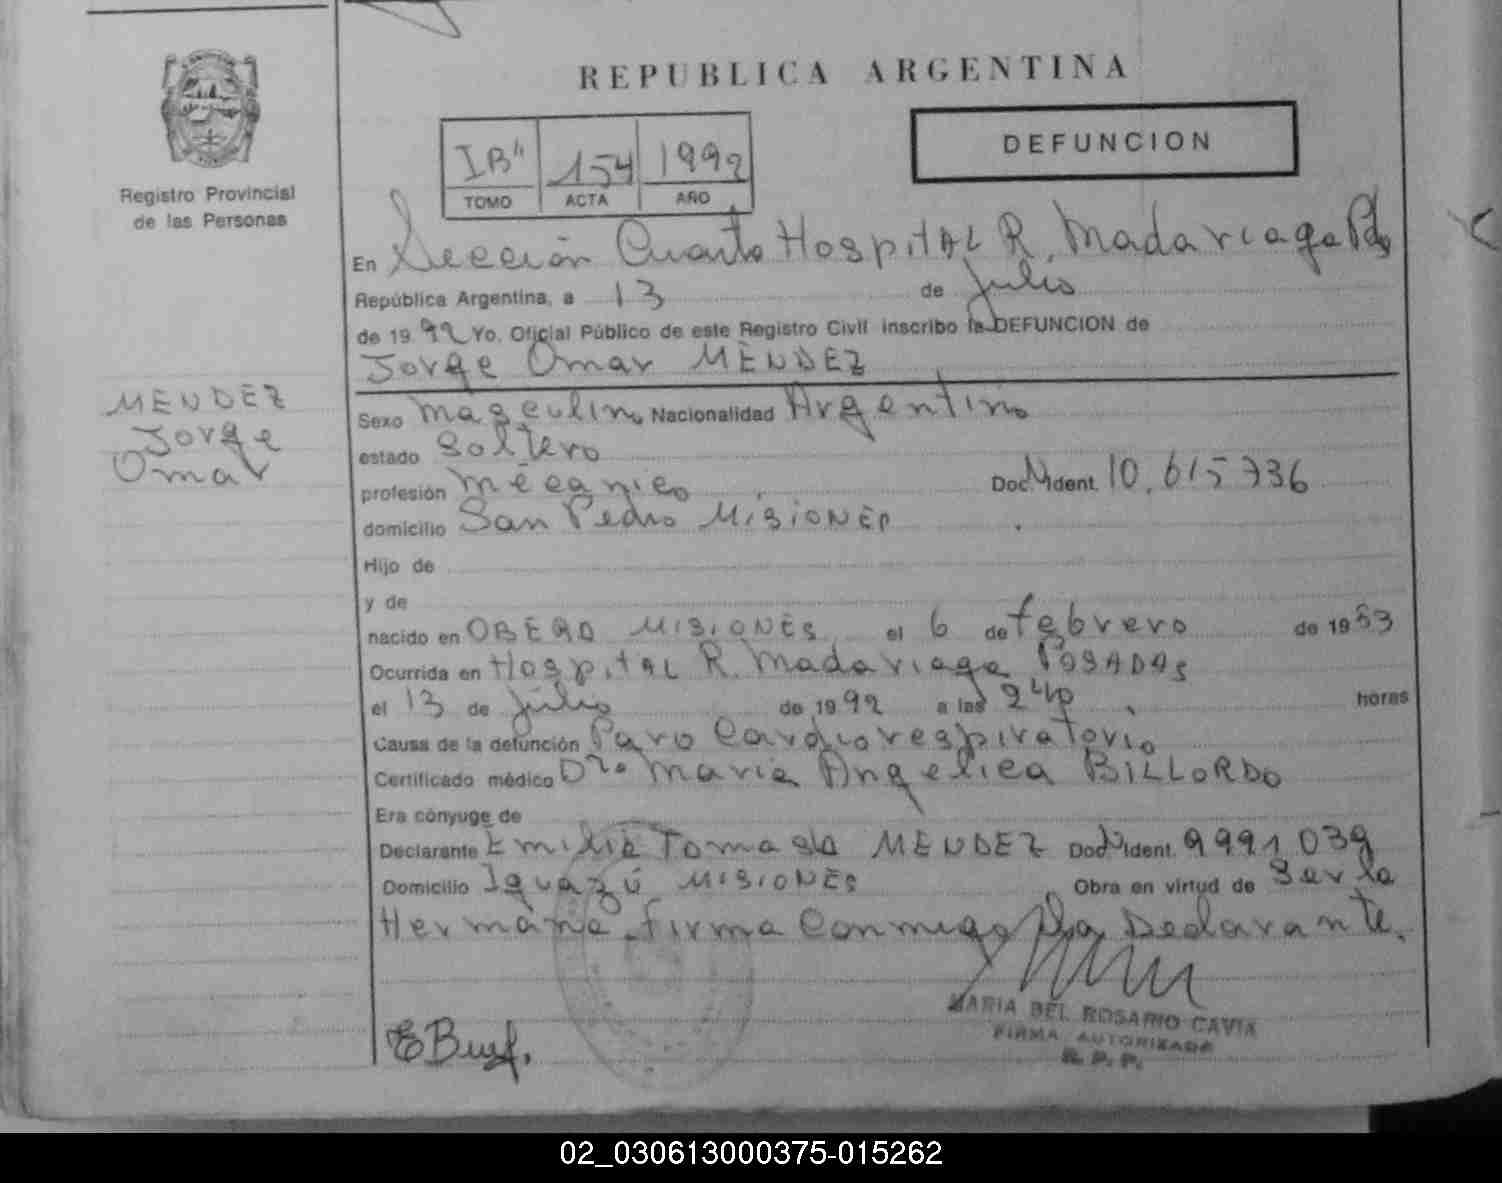 REPUBLICA ARGENTINA
Registro Provincial
de las Personas
IB" 154 1992
TOMO ACTA AÑO
DEFUNCION
En Sección Cuarta Hospital R. Madariaga Pdas
República Argentina, a 13 de Julio
de 1992 Yo, Oficial Público de este Registro Civil inscribo la DEFUNCION de
Jorge Omar MENDEZ
MENDEZ
Jorge
Omar
Sexo masculino Nacionalidad Argentino
estado Soltero
profesión mécanico Doc. N Ident. 10.615736
domicilio San Pedro MisiONES
Hijo de
y de
nacido en OBERA MISIONES el 6 de febrero de 1953
Ocurrida en HospitAL R. Madariaga POSADAS
el 13 de Julio de 1992 a las 240 horas
Causa de la defunción Paro Cardiorespiratorio
Certificado médico Dra María Angelica BILLORDO
Era cónyuge de
Declarante Emilia Tomasa MENDEZ Doc N Ident. 9991039
Domicilio Iguazú MISIONES Obra en virtud de Ser la
Hermana firma conmigo la Declarante.
MARIA DEL ROSARIO CAVIA
FIRMA AUTORIZADA
R. P. P.
02_030613000375-015262